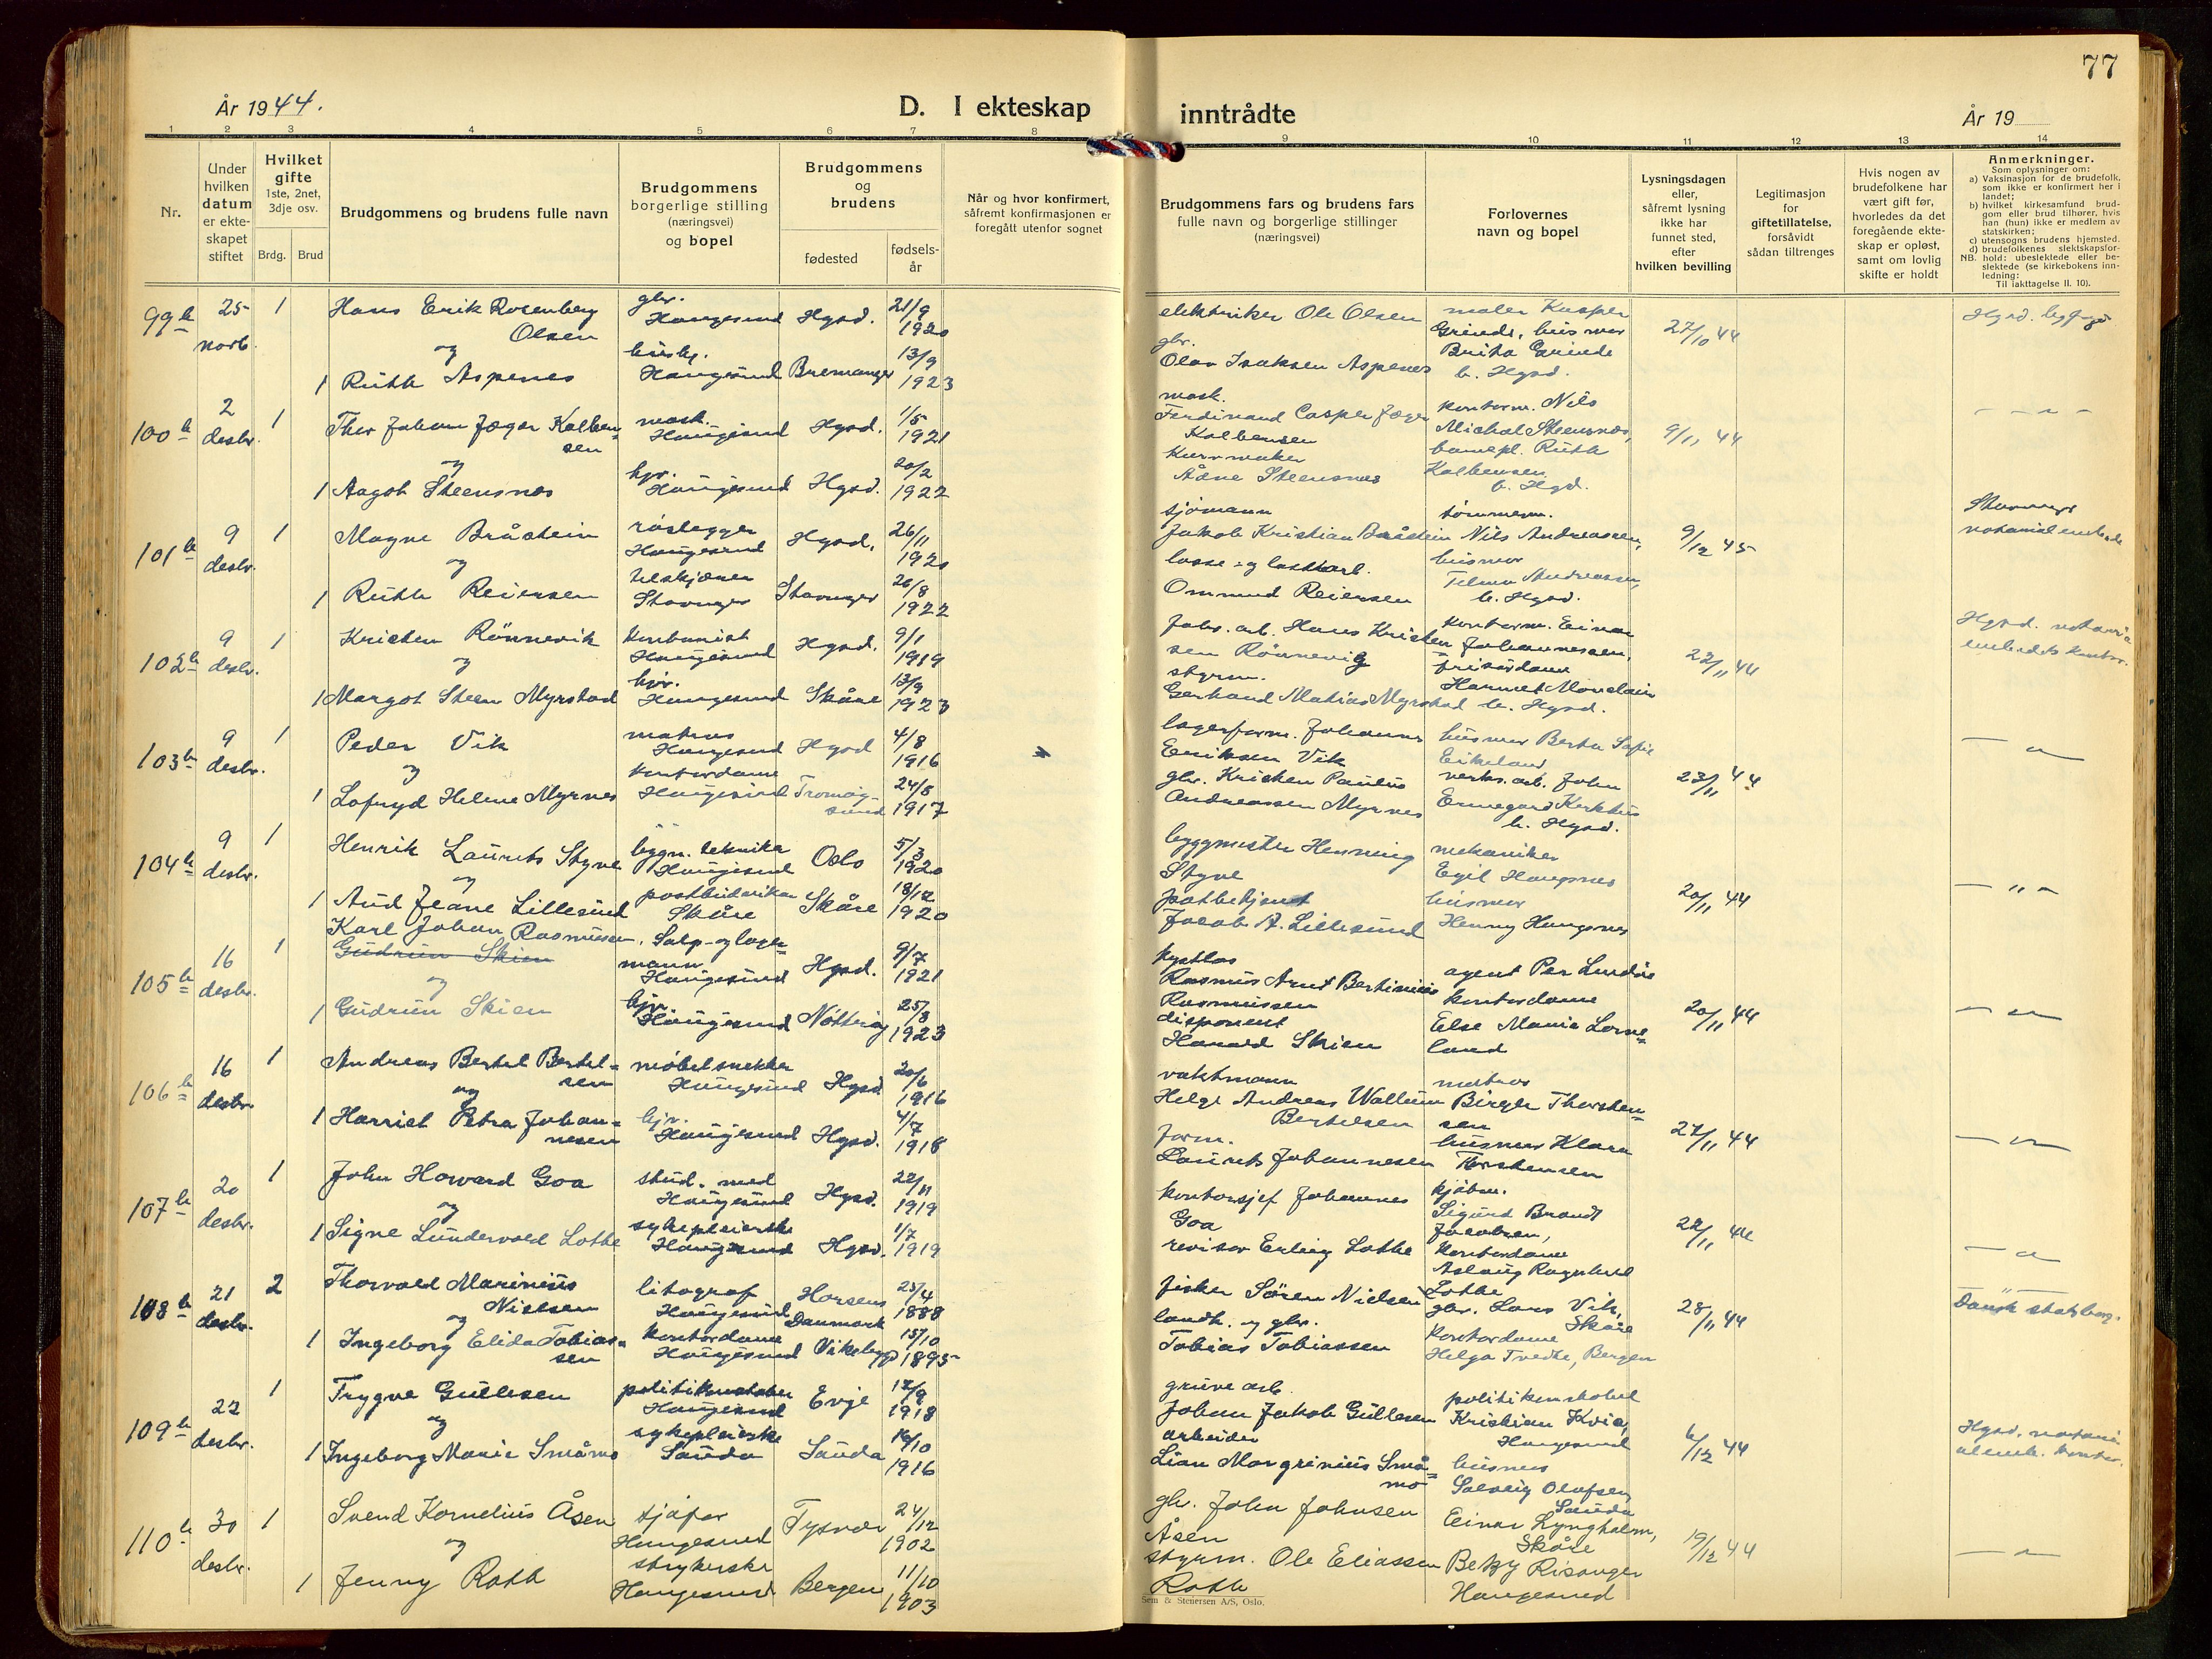 77
År 1944.
D. I ekteskap inntrådte
År 19
1 2 3 4 5 6 7 8 9 10 11 12 13 14
Nr.
Under hvilken datum er ekteskapet stiftet
Hvilket gifte
1ste, 2net, 3dje osv.
Brdg. Brud
Brudgommens og brudens fulle navn
Brudgommens borgerlige stilling (næringsvei) og bopel
Brudgommens og brudens
fødested
fødselsår
Når og hvor konfirmert, såfremt konfirmasjonen er foregått utenfor sognet
Brudgommens fars og brudens fars fulle navn og borgerlige stillinger (næringsvei)
Forlovernes navn og bopel
Lysningsdagen eller, såfremt lysning ikke har funnet sted, efter hvilken bevilling
Legitimasjon for giftetillatelse, forsåvidt sådan tiltrenges
Hvis nogen av brudefolkene har vært gift før, hvorledes da det foregående ekteskap er opløst, samt om lovlig skifte er holdt
Anmerkninger.
Som oplysninger om:
a) Vaksinasjon for de brudefolk, som ikke er konfirmert her i landet;
b) hvilket kirkesamfund brudgom eller brud tilhører, hvis han (hun) ikke er medlem av statskirken;
c) utensogns brudens hjemsted.
d) brudefolkenes slektskapsforhold: ubeslektede eller beslektede (se kirkebokens innledning:
NB.
Til iakttagelse II. 10).
99 b 25 novb. 1 Hans Erik Rosenberg Olsen gbr. Haugesund Hgsd. 21/9 1920
og
1 Ruth Aspenes husbg. Haugesund Bremanger 13/9 1923
elektriker Ole Olsen
gbr. Olav Isaksen Aspenes
maler Kasper Grinde, husmor Brita Grinde b. Hgsd.
27/10 44
100 b 2 desbr. 1 Thor Johan Jæger Kolbensen mask. Haugesund Hgsd. 1/5 1921
og
1 Aagot Steensnes hjv. Haugesund Hgsd. 20/2 1922
mask. Ferdinand Casper Jæger Kolbensen
kurvmaker Ådne Steensnes
kontorm. Nils Michal Steensnes, barnepl. Ruth Kolbensen b. Hgsd.
9/11 44
101 b 9 desbr. 1 Magne Bråstein rørlegger Haugesund Hgsd. 26/11 1920
og
1 Ruth Reiersen Stavanger Stavanger 26/8 1922
sjømann Jakob Kristian Bråstein
losse- og lastearb. Ommund Reiersen
tømmerm. Nils Andreassen, husmor Telma Andreassen, b. Hgsd.
9/12 45
Stavanger notarialembede
102 b 9 desbr. 1 Kristen Rønnevik kontorist Haugesund Hgsd. 9/1 1919
og
1 Margot Steen Myrstad hjv. Haugesund Skåre 13/9 1923
fabr. arb. Hans Kristensen Rønnevig
styrm. Gerhard Matias Myrstad
kontorm. Einar Johannessen, frisørdame b. Hgsd.
22/11 44
Hgsd. notarialembedets kontor.
103 b 9 desbr. 1 Peder Vik matros Haugesund Hgsd 4/8 1916
og
1 Lofryd Helene Myrnes kontordame Haugesund Tromøysund 24/8 1917
lagerform. Johannes Eriksen Vik
gbr. Kristen Paulus Andreassen Myrnes
husmor Berta Sofie Eikeland
verks.arb. John b. Hgsd.
23/11 44
104 b 9 desbr. 1 Henrik Laurits Styve byggn. tekniker Haugesund Oslo 5/3 1920
og
1 Aud Jeane Lillesund postbudvikar Skåre Skåre 18/12 1920
byggmester Henning Styve
postbetjent Jacob A. Lillesund
mekaniker Egil Haugsnes
husmor Henny Haugsnes
20/11 44
105 b 16 desbr. 1 Karl Johan Rasmussen Gudrun Skien Salg- og lagermann Haugesund Hgsd. 9/7 1921
og
1 Gudrun Skien hjv. Haugesund Nøtterøy 25/8 1923
Rasmus Arnt Bertinius Rasmussen
disponent Havard Skien
agent Per Lindøe
kontordame Else Marie Lorneland
20/11 44
106 b 16 desbr. 1 Andreas Bertel Bertelsen møbelsnekker Haugesund Hgsd. 20/6 1916
og
1 Harriet Petra Johannesen hjv. Haugesund Hgsd. 4/7 1918
vaktmann Helge Andreas Wallum Bertelsen
form. Laurits Johannesen
matros Birger Thorstensen
husmor Klara Thorstensen
27/11 44
107 b 20 desbr. 1 John Howard Goa stud. med Haugesund Hgsd. 22/11 1919
og
1 Signe Lundervold Lothe sykepleierske Haugesund Hgsd. 1/7 1919
kontorsjef Johannes Goa
revisor Erling Lothe
kjøbm. Sigurd Brandt Jacobsen,
kontordame Aslaug Ragnhild Lothe
22/11 44
108 b 21 desbr. 2 Thorvald Marinius Nielsen litograf Haugesund Horsens Danmark 25/4 1888
og
1 Ingeborg Elida Tobiassen kontordame Haugesund Vikebygd 15/10 1895
fisker Søren Nielsen
landh. og gbr. Tobias Tobiassen
gbr. Lars Vik, Skåre
kontordame Helga Tvedte, Bergen
28/11 44
Dansk statsborg.
109 b 22 desbr. 1 Trygve Gullesen politikonstabel Haugesund Evje 12/9 1918
og
1 Ingeborg Marie Småmo sykepleierske Sauda Sauda 16/10 1916
gruve arb. Johan Jakob Gullesen
arbeider Lian Margrinius Småmo
politikonstabel Kristian Kvia, Haugesund
husmor Solveig Olofsen, Sauda
6/12 44
Hgsd. notarialemb. kontor.
110 b 30 desbr. 1 Svend Kornelius Åsen sjåfør Haugesund Tysvær 24/12 1902
og
1 Jenny Roth strykerske Haugesund Bergen 11/10 1903
gbr. John Johnsen Åsen
styrm. Ole Eliassen Roth
Einar Lyngholm, Skåre
Betzy Risanger Haugesund
19/12 44
Sem & Stenersen A/S, Oslo.